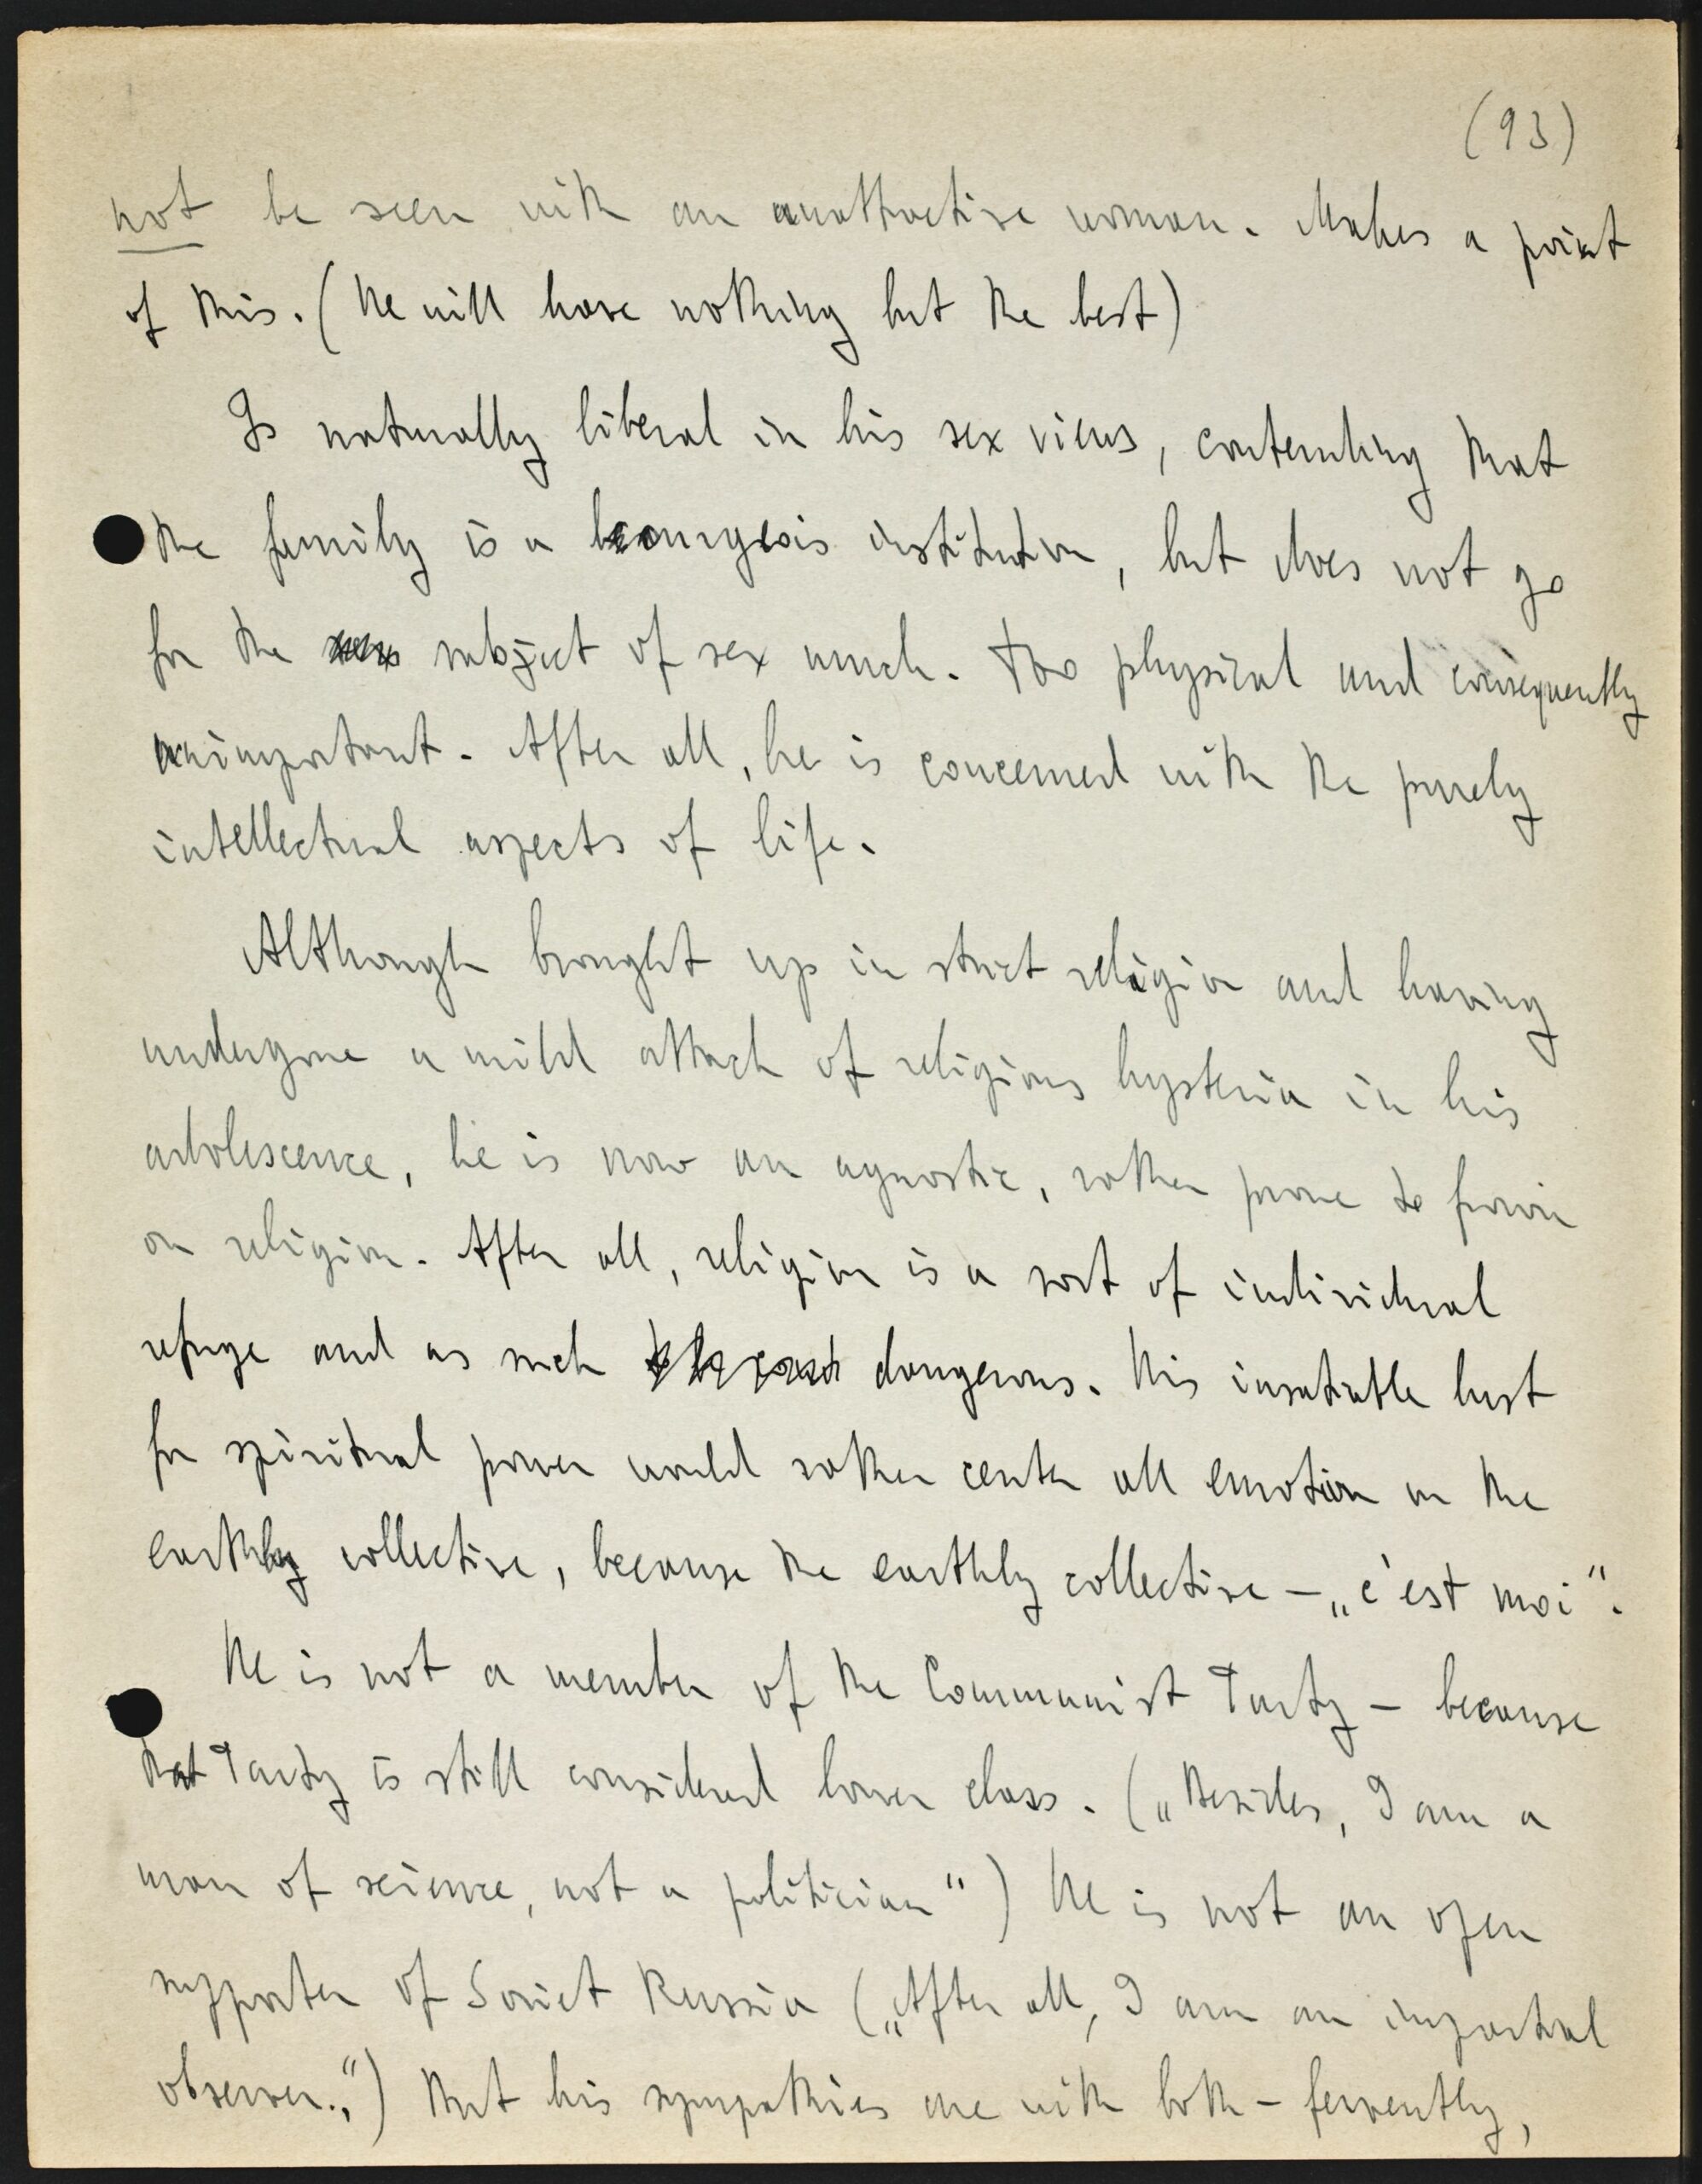 (93)
not be seen with an unattractive woman. Makes a point
of this. (He will have nothing but the best)
Is naturally liberal in his sex views, contending that
the family is a bourgeois institution, but does not go
for the subject of sex much. Too physical and consequently
unimportant. After all, he is concerned with the purely
intellectual aspects of life.
Although brought up in strict religion and having
undergone a mild attack of religious hysteria in his
adolescence, he is now an agnostic, rather prone to frown
on religion. After all, religion is a sort of individual
refuge and as such dangerous. His insatiable lust
for spiritual power would rather center all emotion on the
earthly collective, because the earthly collective — „c'est moi“.
He is not a member of the Communist Party — because
that Party is still considered lower class. („Besides, I am a
man of science, not a politician“) He is not an open
supporter of Soviet Russia („After all, I am an impartial
observer.“) But his sympathies are with both — fervently,